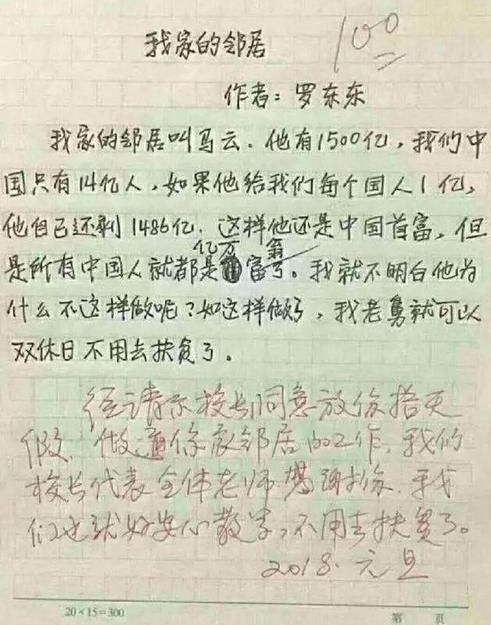 我家的邻居
100
作者：罗东东
我家的邻居叫马云．他有1500亿，我们中
国只有14亿人，如果他给我们每个国人1亿，
他自己还剩1486亿．这样他还是中国首富，但
亿万 翁
是所有中国人就都是富了。我就不明白他为
什么不这样做呢？如这样做好，我老舅就可以
双休日不用去扶贫了。
经请示校长同意放你
假．做通你家邻居的工作．我们
校长代表全体老师感谢你．我
们也就好安心教学，不用去扶贫了。
2018.元旦
20×15=300
第 页